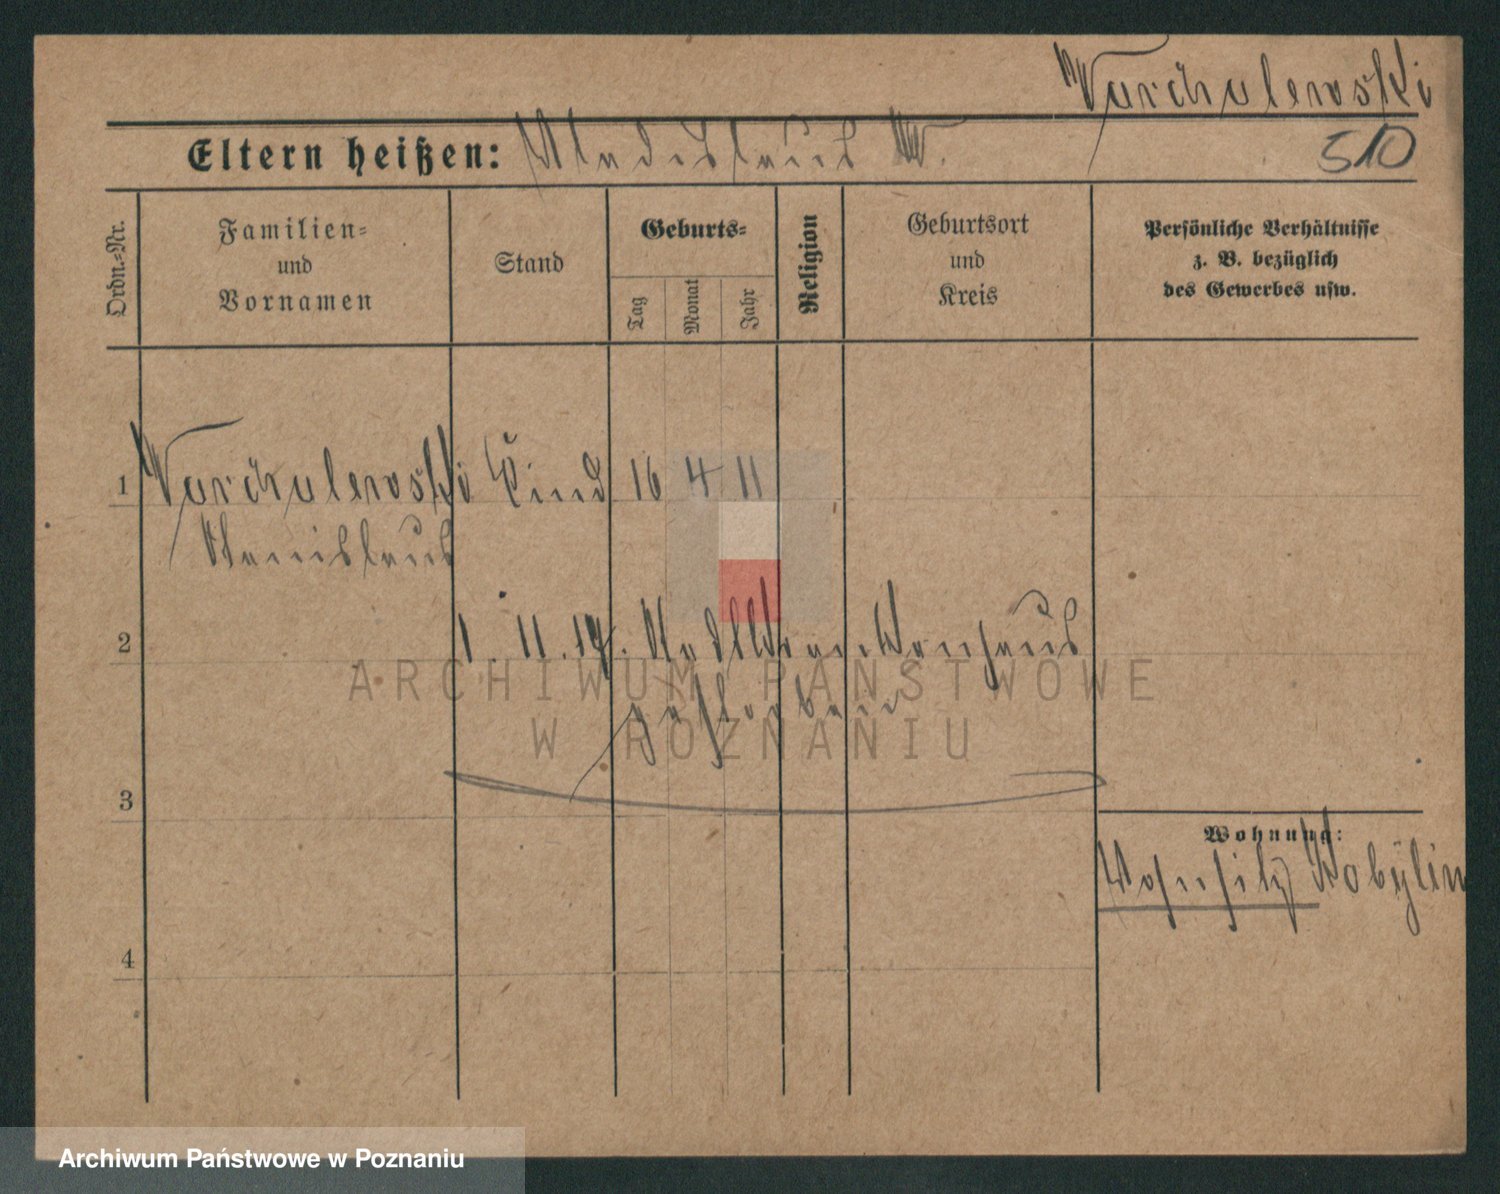 Warchalewski
510
Eltern heißen: Wladislaus W.
Ordn.-Nr.
Familien-
und
Vornamen
Stand
Geburts-
Tag
Monat
Jahr
Religion
Geburtsort
und
Kreis
Persönliche Verhältnisse
z. B. bezüglich
des Gewerbes usw.
1 Warchalewski Kind 16 4 11
Stanislaus
2
1. 11. 17. Stadtkrankenhaus
gestorben
3
Wohnung:
Wohnsitz Kobylin
4
ARCHIWUM PAŃSTWOWE
W POZNANIU
Archiwum Państwowe w Poznaniu